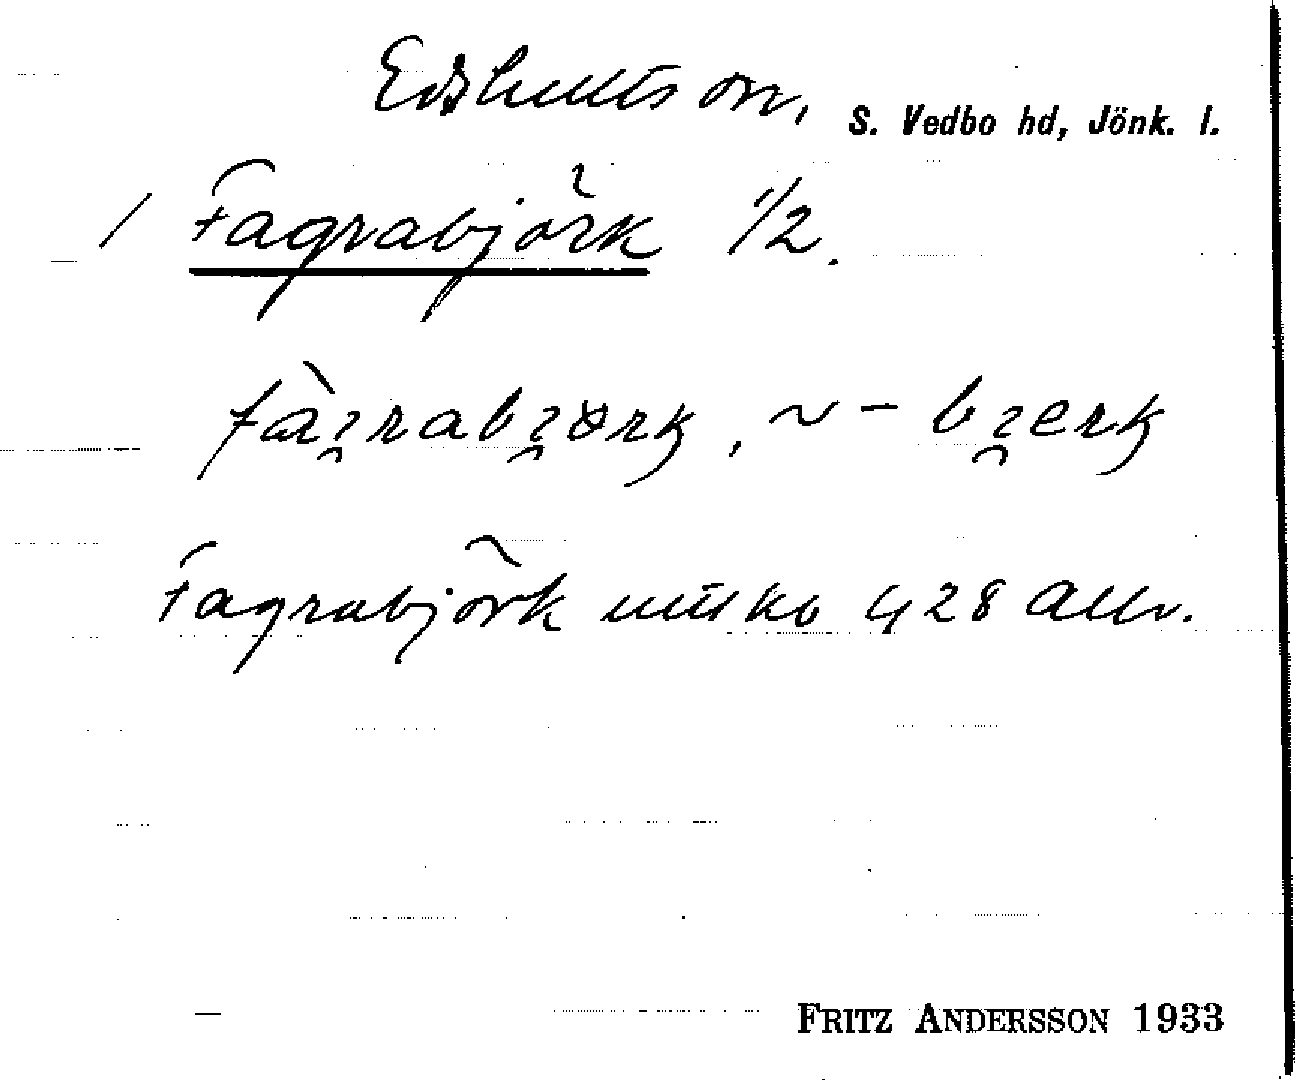 Edshults sn, S. Vedbo hd, Jönk. l.
/ Fagrabjörk 1/2.
fàı̯rabı̯ørk, ~ – bı̯erk
Fagrabjörk utsko 428 Allm.
FRITZ ANDERSSON 1933